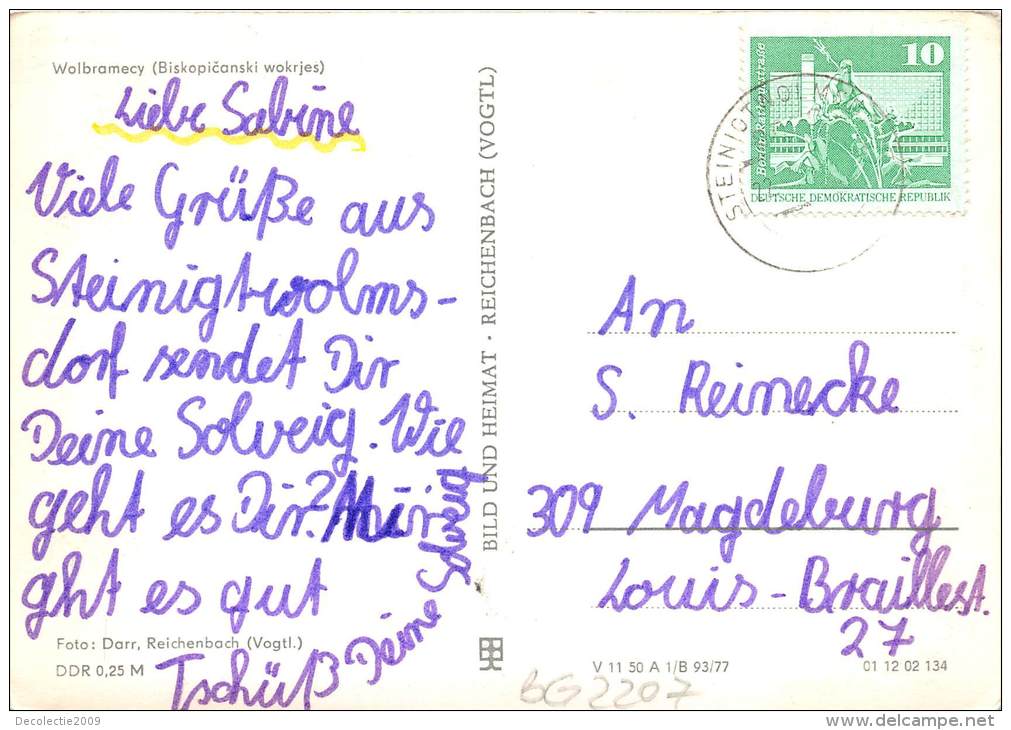 Wolbramecy (Biskopičanski wokrjes)
Liebe Sabine
Viele Grüße aus
Steinigtwolms-
dorf sendet Dir
Deine Solveig. Wie
geht es Dir? Mir
ght es gut
Tschüß Deine Solveig
Foto: Darr, Reichenbach (Vogtl.)
DDR 0,25 M
BILD UND HEIMAT · REICHENBACH (VOGTL)
10
Berlin-Rathausstraße
DEUTSCHE DEMOKRATISCHE REPUBLIK
STEINIGTWOLMS
An
S. Reinecke
309 Magdeburg
Louis-Braillest.
27
V 11 50 A 1/B 93/77
01 12 02 134
bG2207
Decolectie2009
delcampe.net